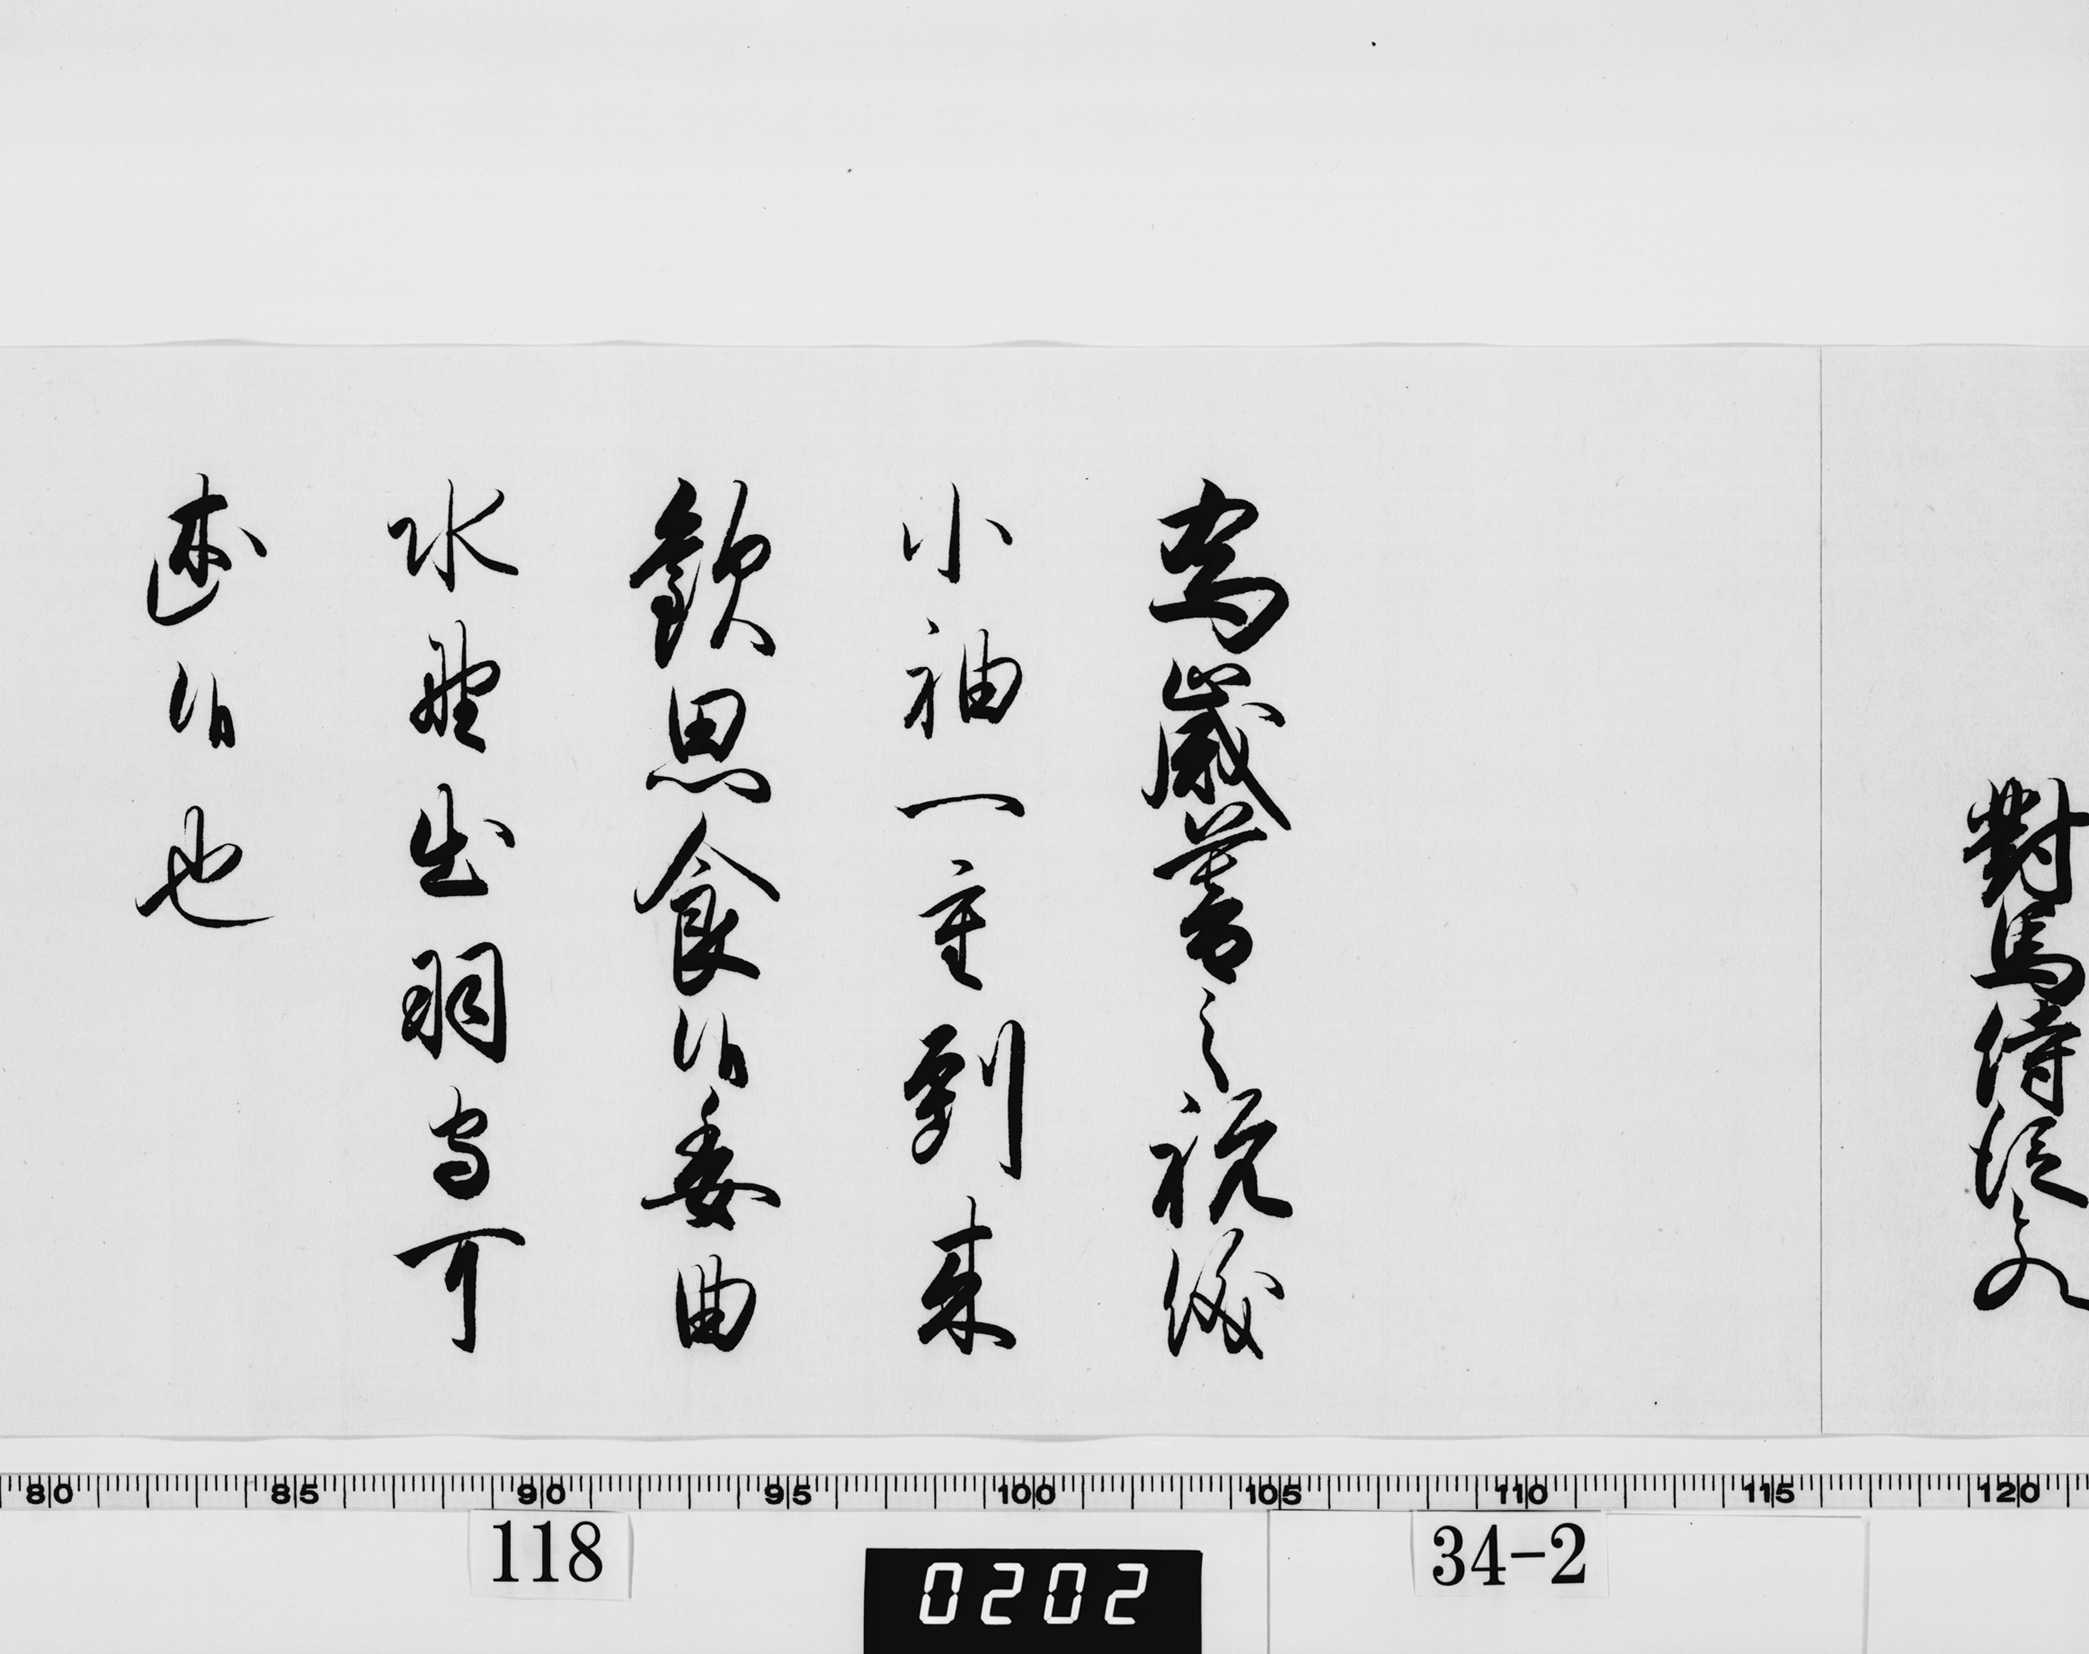 對馬侍従殿
為歳暮之祝儀
小袖一重到来
歓思食候委曲
水野出羽守可
述候也
80 85 90 95 100 105 110 115 120
118
0202
34-2